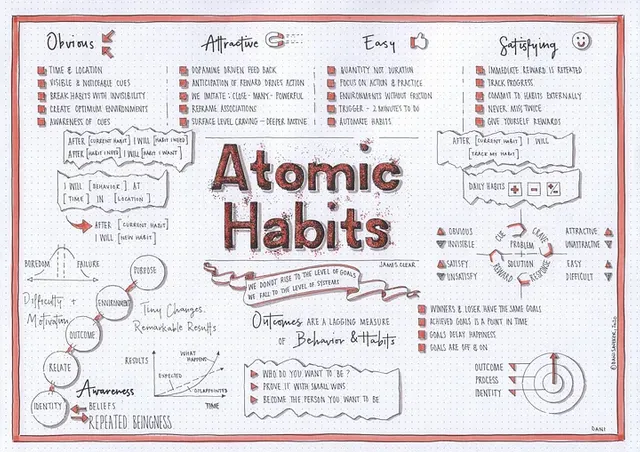 Obvious
TIME & LOCATION
VISIBLE & NOTICABLE CUES
BREAK HABITS WITH INVISIBILITY
CREATE OPTIMUM ENVIRONMENTS
AWARENESS OF CUES
Attractive
DOPAMINE DRIVEN FEED BACK
ANTICIPATION OF REWARD DRIVES ACTION
WE IMITATE : CLOSE - MANY - POWERFUL
REFRAME ASSOCIATIONS
SURFACE LEVEL CRAVING - DEEPER MOTIVE
Easy
QUANTITY NOT DURATION
FOCUS ON ACTION & PRACTICE
ENVIRONMENTS WITHOUT FRICTION
TRIGGER - 2 MINUTES TO DO
AUTOMATE HABITS
Satisfying
IMMEDIATE REWARD IS REPEATED
TRACK PROGRESS
COMMIT TO HABITS EXTERNALLY
NEVER MISS TWICE
GIVE YOURSELF REWARDS
AFTER [CURRENT HABIT] I WILL [HABIT I NEED]
AFTER [HABIT I NEED] I WILL [HABIT I WANT]
I WILL [BEHAVIOR] AT
[TIME] IN [LOCATION]
AFTER [CURRENT HABIT]
I WILL [NEW HABIT]
Atomic
Habits
JAMES CLEAR
WE DO NOT RISE TO THE LEVEL OF GOALS
WE FALL TO THE LEVEL OF SYSTEMS
AFTER [CURRENT HABIT] I WILL
[TRACK MY HABIT]
DAILY HABITS + - +/-
OBVIOUS
INVISIBLE
SATISFY
UNSATISFY
CUE
CRAVE
PROBLEM
SOLUTION
REWARD
RESPONSE
ATTRACTIVE
UNATTRACTIVE
EASY
DIFFICULT
BOREDOM
FAILURE
Difficulty +
Motivation
PURPOSE
ENVIRONMENT
OUTCOME
RELATE
IDENTITY
Tiny Changes.
Remarkable Results
Awareness
BELIEFS
REPEATED BEINGNESS
RESULTS
WHAT HAPPENS
EXPECTED
DISAPPOINTED
TIME
Outcomes ARE A LAGGING MEASURE
OF Behavior & Habits
WHO DO YOU WANT TO BE?
PROVE IT WITH SMALL WINS
BECOME THE PERSON YOU WANT TO BE
WINNERS & LOSER HAVE THE SAME GOALS
ACHIEVED GOALS IS A POINT IN TIME
GOALS DELAY HAPPINESS
GOALS ARE OFF & ON
OUTCOME
PROCESS
IDENTITY
DANI